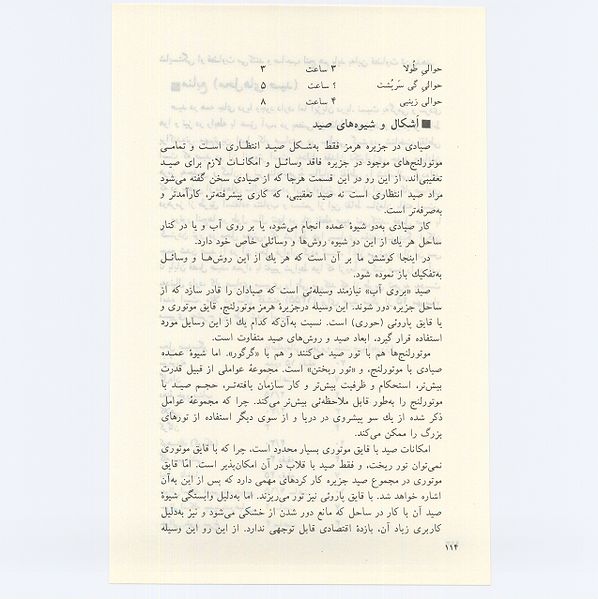 حوالیِ طُولا ۳ ساعت ۳
حوالیِ گی سَربُشت ۴ ساعت ۵
حوالی زینبی ۴ ساعت ۸
■ اَشکال و شیوه‌های صید
صیادی در جزیره هرمز فقط به‌شکل صید انتظاری است و تمامی
موتورلنج‌های موجود در جزیره فاقد وسائل و امکانات لازم برای صید
تعقیبی‌اند. از این رو در این قسمت هرجا که از صیادی سخن گفته می‌شود
مراد صید انتظاری است نه صید تعقیبی، که کاری پیشرفته‌تر، کارآمدتر و
به‌صرفه‌تر است.
کار صیادی به‌دو شیوهٔ عمده انجام می‌شود، یا بر روی آب و یا در کنار
ساحل هر یك از این دو شیوه روش‌ها و وسائلی خاص خود دارد.
در اینجا کوشش ما بر آن است که هر یك از این روش‌ها و وسائل
به‌تفکیك باز نموده شود.
صید «بروی آب» نیازمند وسیله‌ئی است که صیادان را قادر سازد که از
ساحل جزیره دور شوند. این وسیله درجزیرهٔ هرمز موتورلنج، قایق موتوری و
یا قایق پاروئی (حوری) است. نسبت به‌آن‌که کدام یك از این وسایل مورد
استفاده قرار گیرد، ابعاد صید و روش‌های صید متفاوت است.
موتورلنج‌ها هم با تور صید می‌کنند و هم با «گرگور». اما شیوهٔ عمده
صیادی با موتورلنج، و «تور ریختن» است. مجموعهٔ عواملی از قبیل قدرت
بیش‌تر، استحکام و ظرفیت بیش‌تر و کار سازمان یافته‌تر، حجم صید با
موتورلنج را به‌طور قابل ملاحظه‌ئی بیش‌تر می‌کند. چرا که مجموعهٔ عوامل
ذکر شده از یك سو پیشروی در دریا و از سوی دیگر استفاده از تورهای
بزرگ را ممکن می‌کند.
امکانات صید با قایق موتوری بسیار محدود است، چرا که با قایق موتوری
نمی‌توان تور ریخت، و فقط صید با قلاب در آن امکان‌پذیر است. امّا قایق
موتوری در مجموع صید جزیره کار کردهای مهمی دارد که پس از این به‌آن
اشاره خواهد شد. با قایق پاروئی نیز تور می‌ریزند. اما به‌دلیل وابستگی شیوهٔ
صید آن با کار در ساحل که مانع دور شدن از خشکی می‌شود و نیز به‌دلیل
کاربری زیاد آن، بازدهٔ اقتصادی قابل توجهی ندارد. از این رو این وسیله
۱۱۴